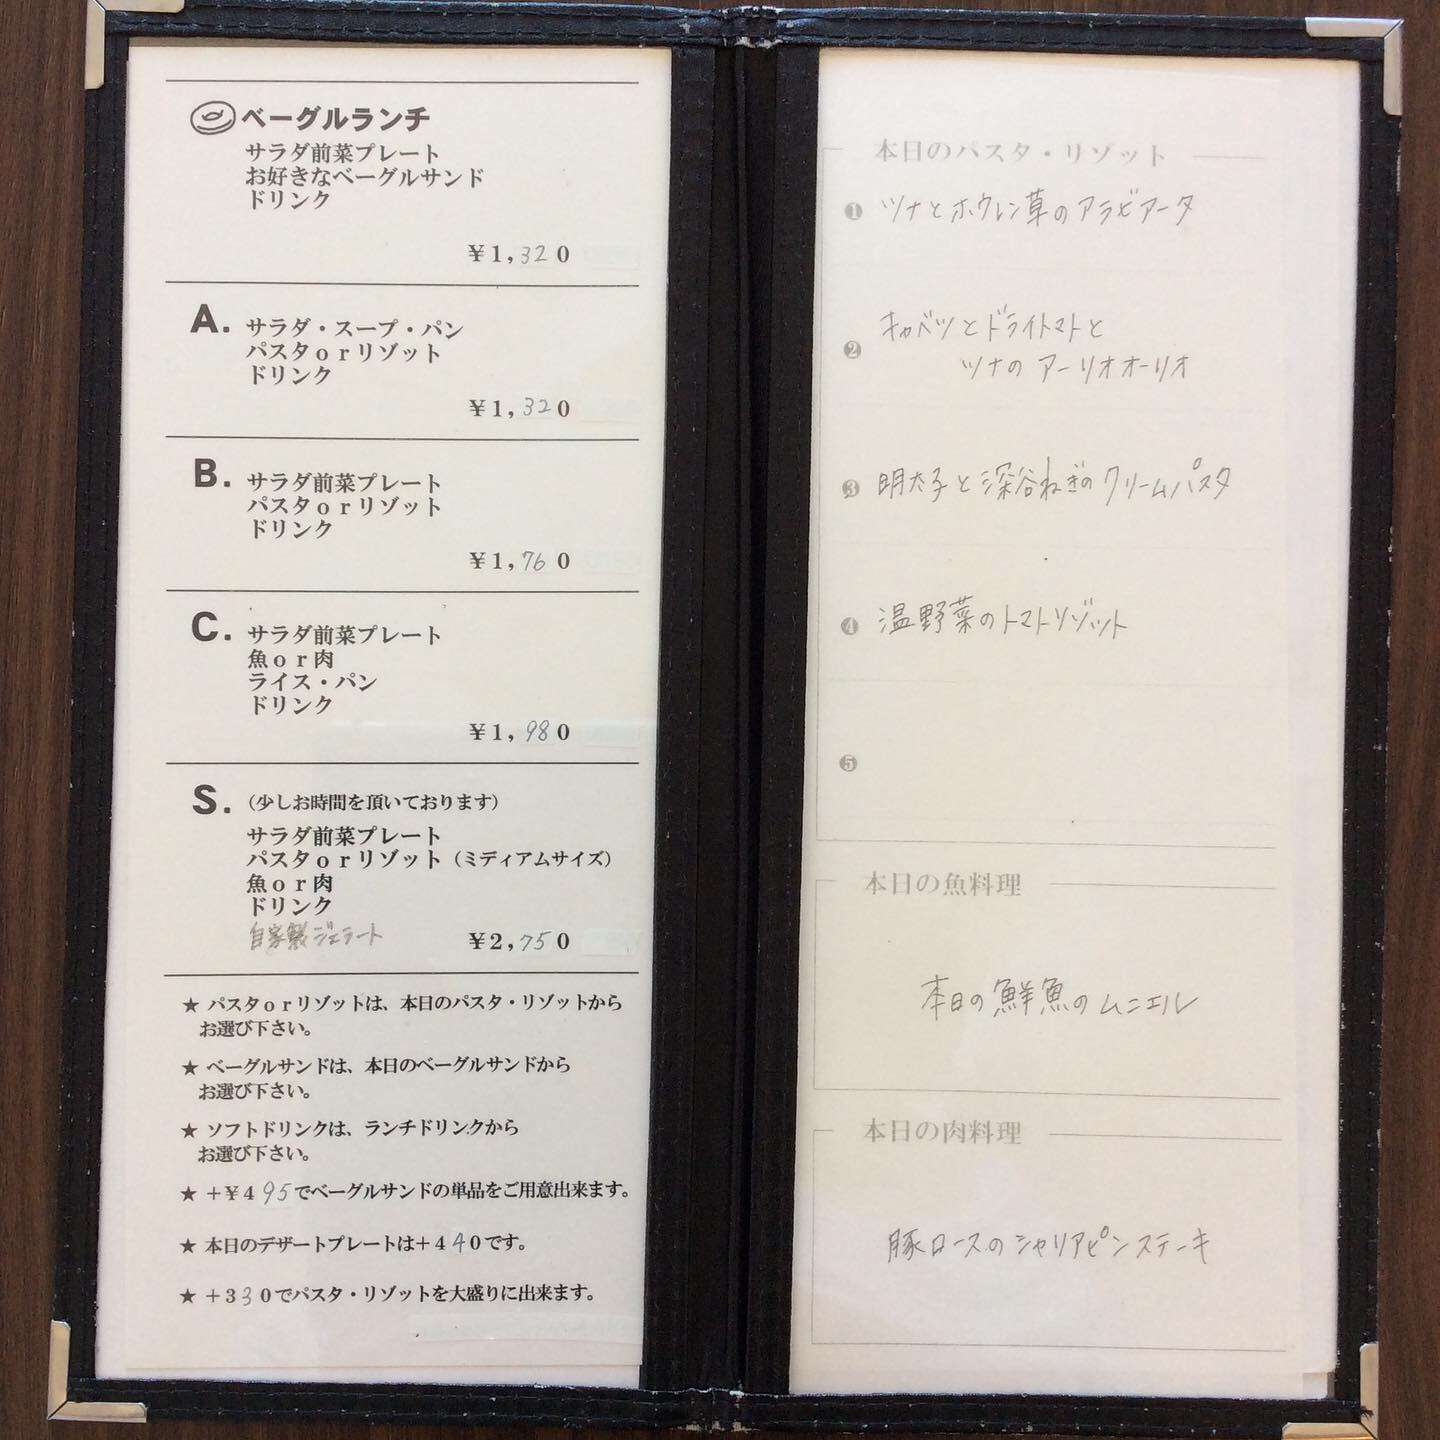 ベーグルランチ
サラダ前菜プレート
お好きなベーグルサンド
ドリンク
¥1,320
A. サラダ・スープ・パン
パスタorリゾット
ドリンク
¥1,320
B. サラダ前菜プレート
パスタorリゾット
ドリンク
¥1,760
C. サラダ前菜プレート
魚or肉
ライス・パン
ドリンク
¥1,980
S. (少しお時間を頂いております)
サラダ前菜プレート
パスタorリゾット(ミディアムサイズ)
魚or肉
ドリンク
自家製ジェラート ¥2,750
★ パスタorリゾットは、本日のパスタ・リゾットから
お選び下さい。
★ ベーグルサンドは、本日のベーグルサンドから
お選び下さい。
★ ソフトドリンクは、ランチドリンクから
お選び下さい。
★ +¥495でベーグルサンドの単品をご用意出来ます。
★ 本日のデザートプレートは+440です。
★ +330でパスタ・リゾットを大盛りに出来ます。
本日のパスタ・リゾット
❶ ツナとホウレン草のアラビアータ
❷ キャベツとドライトマトと
ツナのアーリオオーリオ
❸ 明太子と深谷ねぎのクリームパスタ
❹ 温野菜のトマトリゾット
❺
本日の魚料理
本日の鮮魚のムニエル
本日の肉料理
豚ロースのシャリアピンステーキ